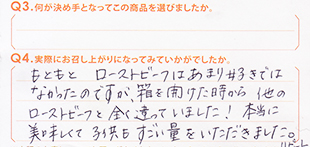 Q3.何が決め手となってこの商品を選びましたか。
Q4.実際にお召し上がりになってみていかがでしたか。
もともと ローストビーフはあまり好きでは
なかったのですが、箱を開けた時から 他の
ローストビーフと全く違っていました！本当に
美味しくて 子供もすごい量をいただきました。
リピート